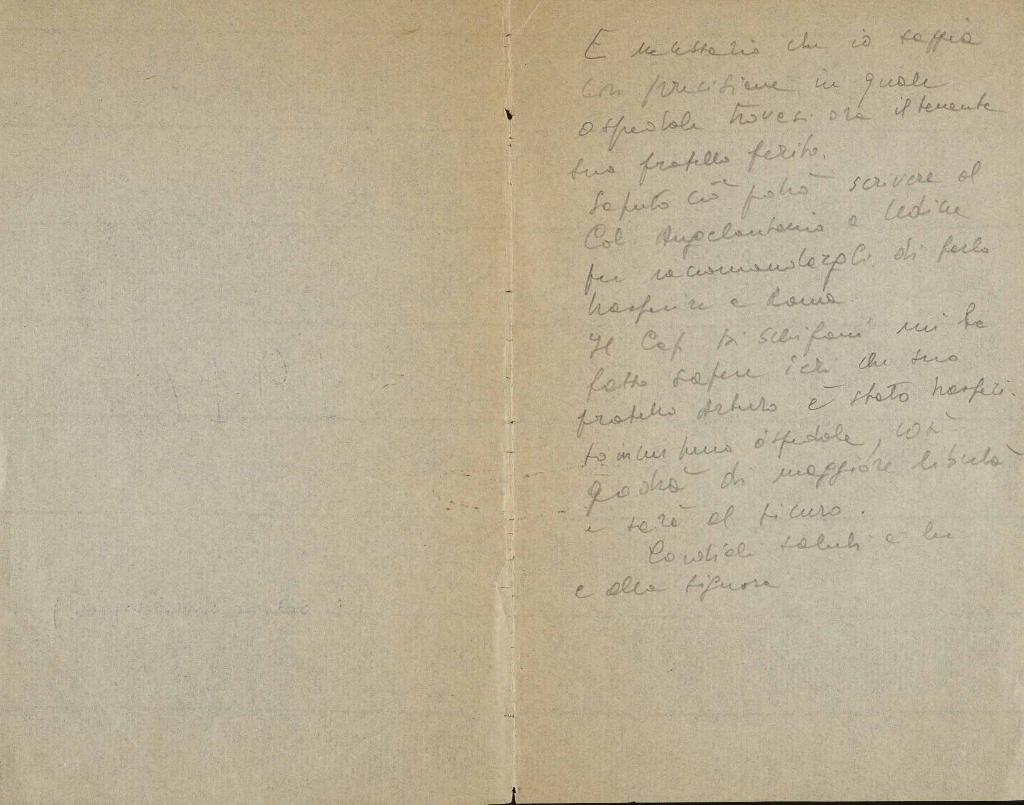 E necessario che io sappia
con precisione in quale
ospedale trovasi ora il tenente
suo fratello ferito.
Saputo ciò potrò scrivere al
Col. Angelantonio a Udine
per raccomandargli di farlo
trasferire a Roma
Il Cap. Schifani mi ha
fatto sapere ieri che suo
fratello Arturo è stato trasferi-
to in un ospedale, così
godrà di maggiore libertà
e sarà al sicuro.
Cordiali saluti a lei
e alla signora